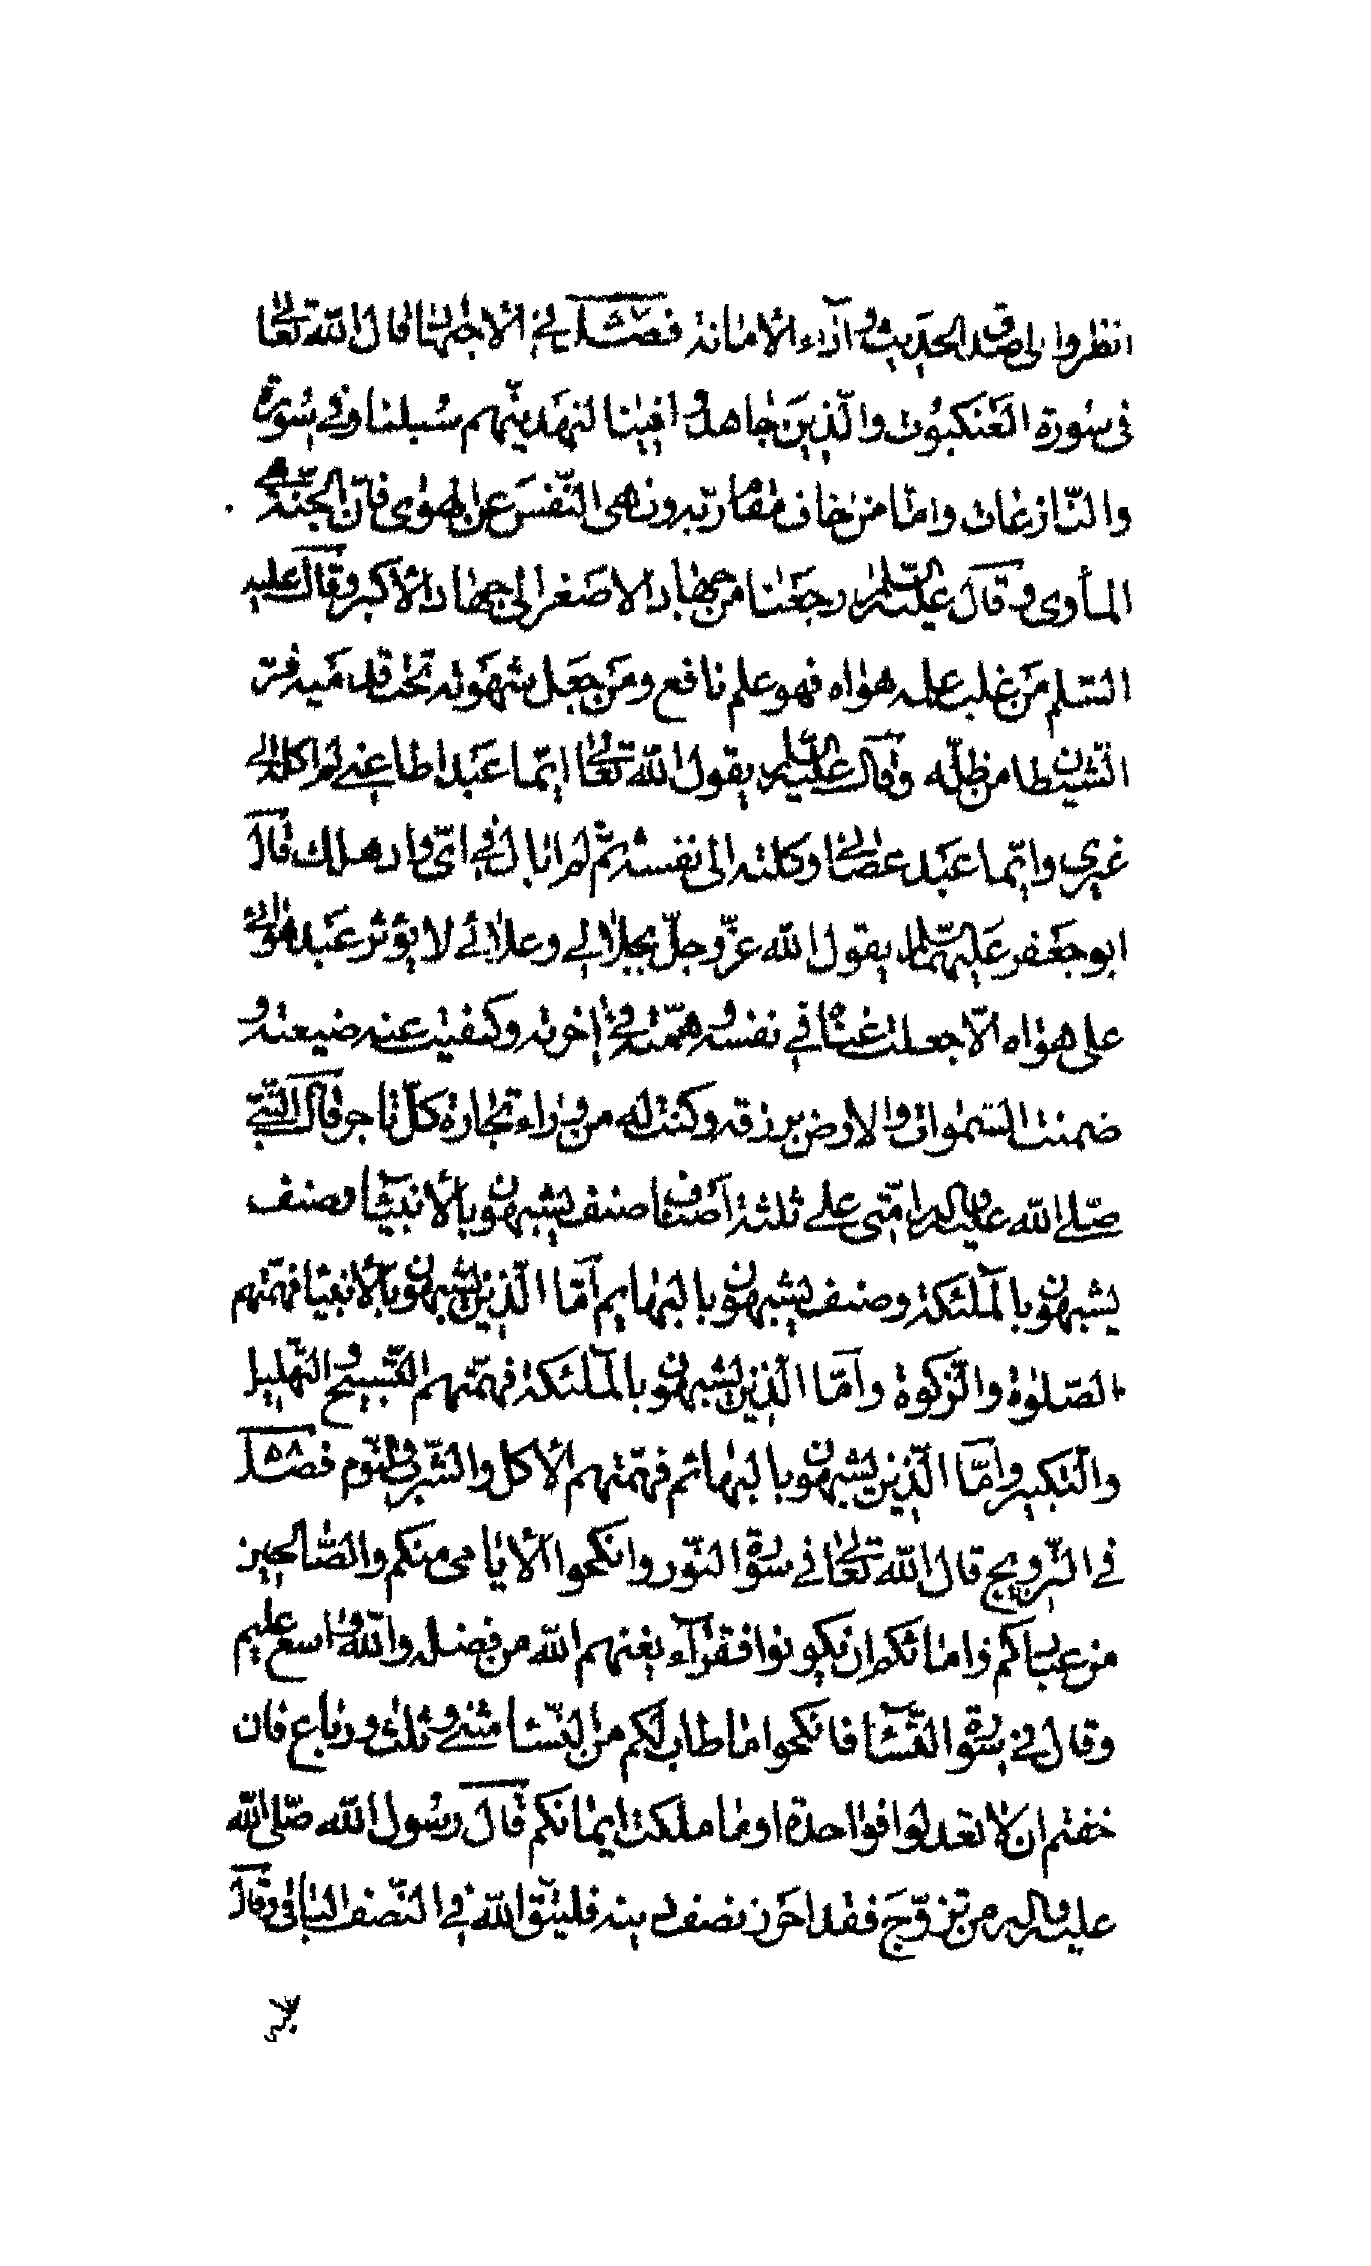 انظروا الى صدق الحديث و آداء الامانة فصل في الاجتهاد قال الله تعالى
في سورة العنكبوت والذين جاهدوا فينا لنهدينهم سبلنا وفي سورة
والنازعات واما من خاف مقام ربه ونهى النفس عن الهوى فان الجنة هي
المأوى و قال عليه السلم رجعنا من جهاد الاصغر الى جهاد الاكبر وقال عليه
السلم من غلب علمه هواه فهو علم نافع ومن جعل شهوته تحت قدميه فر
الشيطان من ظله وقال عليه السلم يقول الله تعالى ايما عبد اطاعني لم اكله الى
غيري وايما عبد عصاني وكلته الى نفسه ثم لم ابال في اي واد هلك قال
ابو جعفر عليهما السلم يقول الله عز وجل بجلالي وعلائي لا يؤثر عبد هواي
على هواه الا جعلت غناه في نفسه و همته في اخرته وكفيت عنه ضيعته و
ضمنت السموات والارض برزقه وكنت له من وراء تجارة كل تاجر قال النبي
صلى الله عليه واله امتي على ثلثة اصناف صنف يشبهون بالانبيا وصنف
يشبهون بالملئكة وصنف يشبهون بالبهايم اما الذين يشبهون بالانبيا فهمتهم
الصلوة والزكوة واما الذين يشبهون بالملئكة فهمتهم التسبيح و التهليل
والتكبير واما الذين يشبهون بالبهائم فهمتهم الاكل والشرب والنوم فصل
في التزويج قال الله تعالى في سورة النور وانكحوا الايامى منكم والصالحين
من عبادكم وامائكم ان يكونوا فقرآء يغنهم الله من فضله والله واسع عليم
وقال في سورة النسآ فانكحوا ما طاب لكم من النسا مثنى و ثلث و رباع فان
خفتم ان لا تعدلوا فواحدة او ما ملكت ايمانكم قال رسول الله صلى الله
عليه واله من تزوج فقد احرز نصف دينه فليتق الله في النصف الباقي وقال